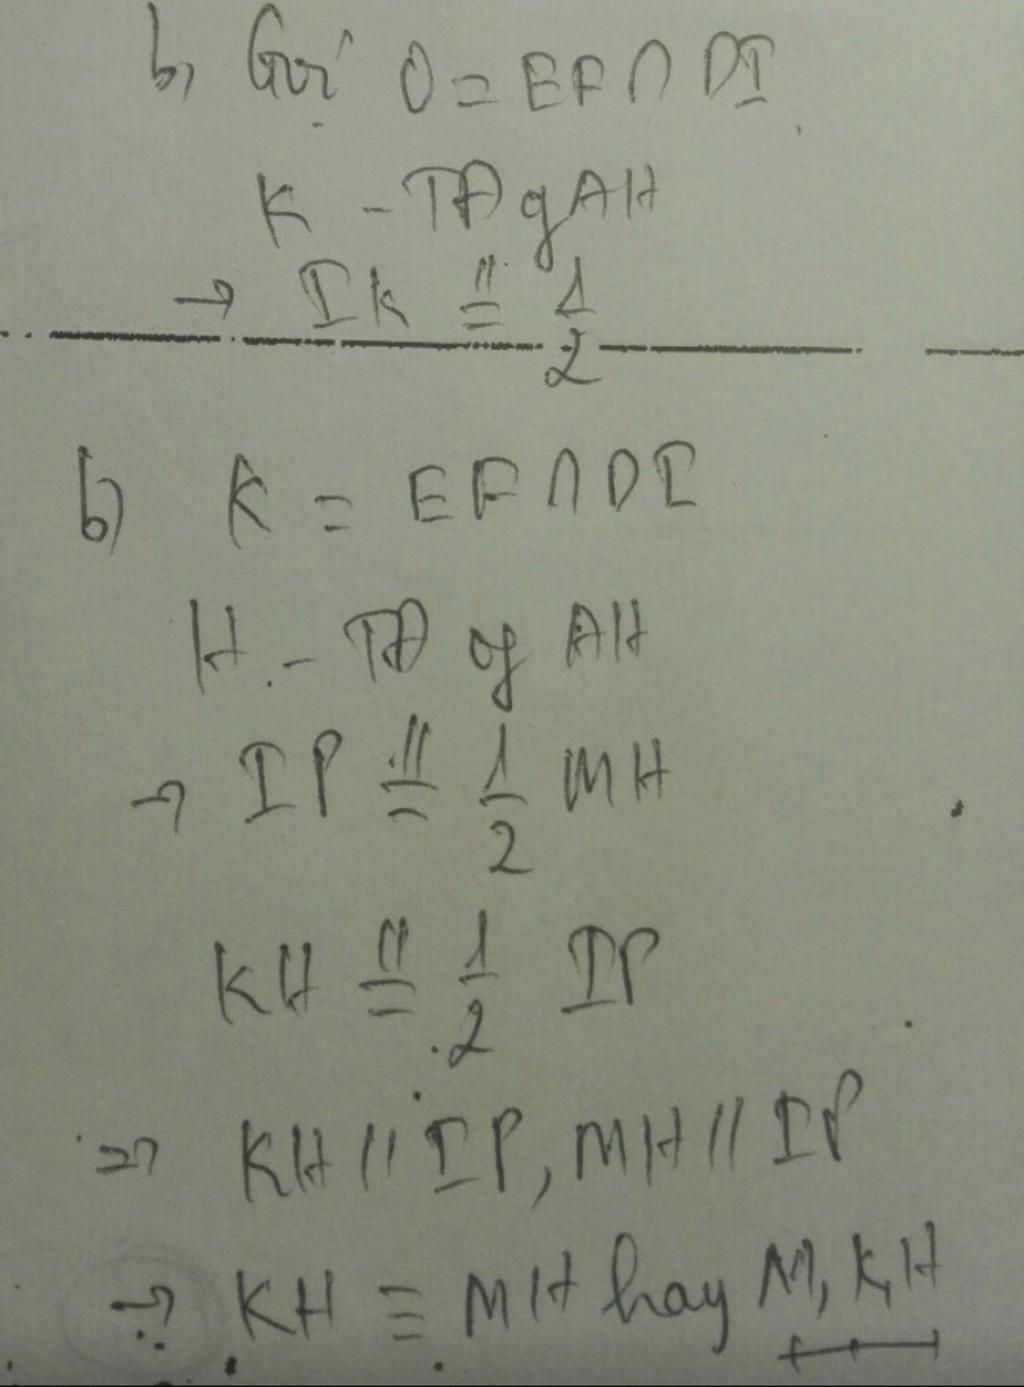 b, Gọi O = EF ∩ DI
K - TĐ of AH
→ IK // = 1/2
b) K = EF ∩ DI
H - TĐ of AH
→ IP // = 1/2 MH
KH // = 1/2 IP
=> KH // IP, MH // IP
→ KH ≡ MH hay M, K, H